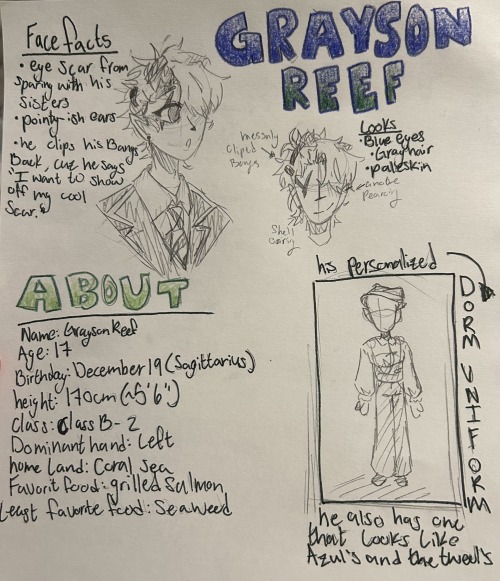 GRAYSON
REEF
Face facts
• eye scar from
sparing with his
sisters
• pointy-ish ears
• he clips his Bangs
Back, cuz he says
"I want to show
off my cool
Scar."
Looks
• Blue eyes
• Gray hair
• pale skin
messily
cliped
Bangs
Pearcing
Shell
his personalized
DORM UNIFORM
he also has one
that looks like
Azul's and the tweel's
ABOUT
Name: Grayson Reef
Age: 17
Birthday: December 19 (Sagittarius)
height: 170cm (~5'6")
class: Class B-2
Dominant hand: Left
home Land: Coral Sea
Favorit food: grilled Salmon
Least favorite food: Seaweed